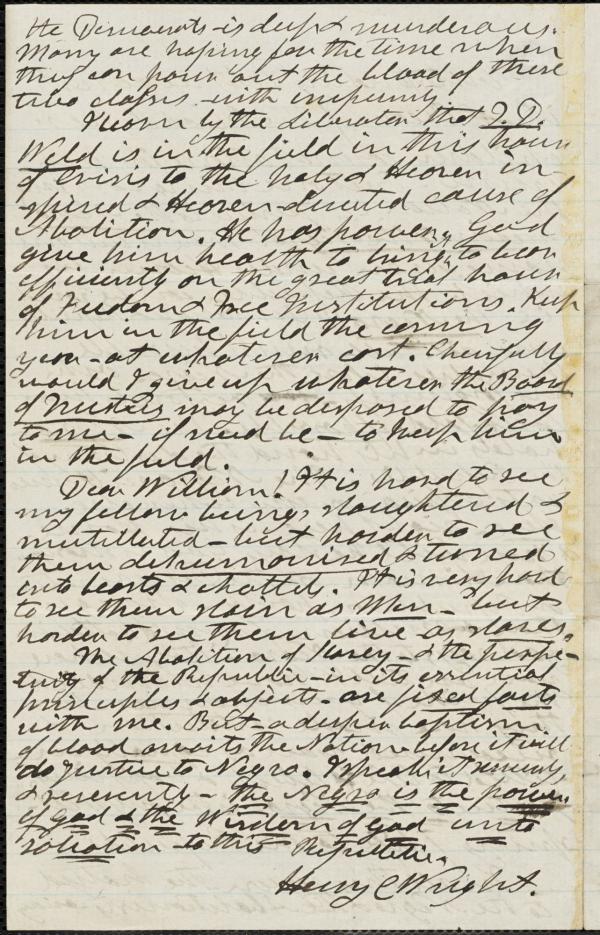 the Democrats - is deep & murderous.
Many are hoping for the time when
they can pour out the blood of these
two classes - with impunity.
I learn by the Liberator that T. D.
Weld is in the field in this hour
of crisis to the holy & Heaven in-
spired & Heaven-directed cause of
Abolition. He has power, God
give him health to bring to bear
efficiently on the great trial hour
of Freedom & Free Institutions. Keep
him in the field the coming
year - at whatever cost. Cheerfully
would I give up whatever the Board
of Trustees may be disposed to pay
to me - if need be - to keep him
in the field.
Dear William! It is hard to see
my fellow beings slaughtered &
mutillated - but harder to see
them dehumanised & turned
into beasts & chattels. It is very hard
to see them slain as Men - but
harder to see them live - as slaves.
The Abolition of Slavery - & the perpe-
tuity of the Republic - in its essential
principles & objects - are fixed facts
with me. But - a deeper baptism
of blood awaits the Nation before it will
do justice to Negro. I speak it
& reverently - the Negro is the power
of God & the Wisdom of God unto
salvation - to this Republic.
Henry C Wright.